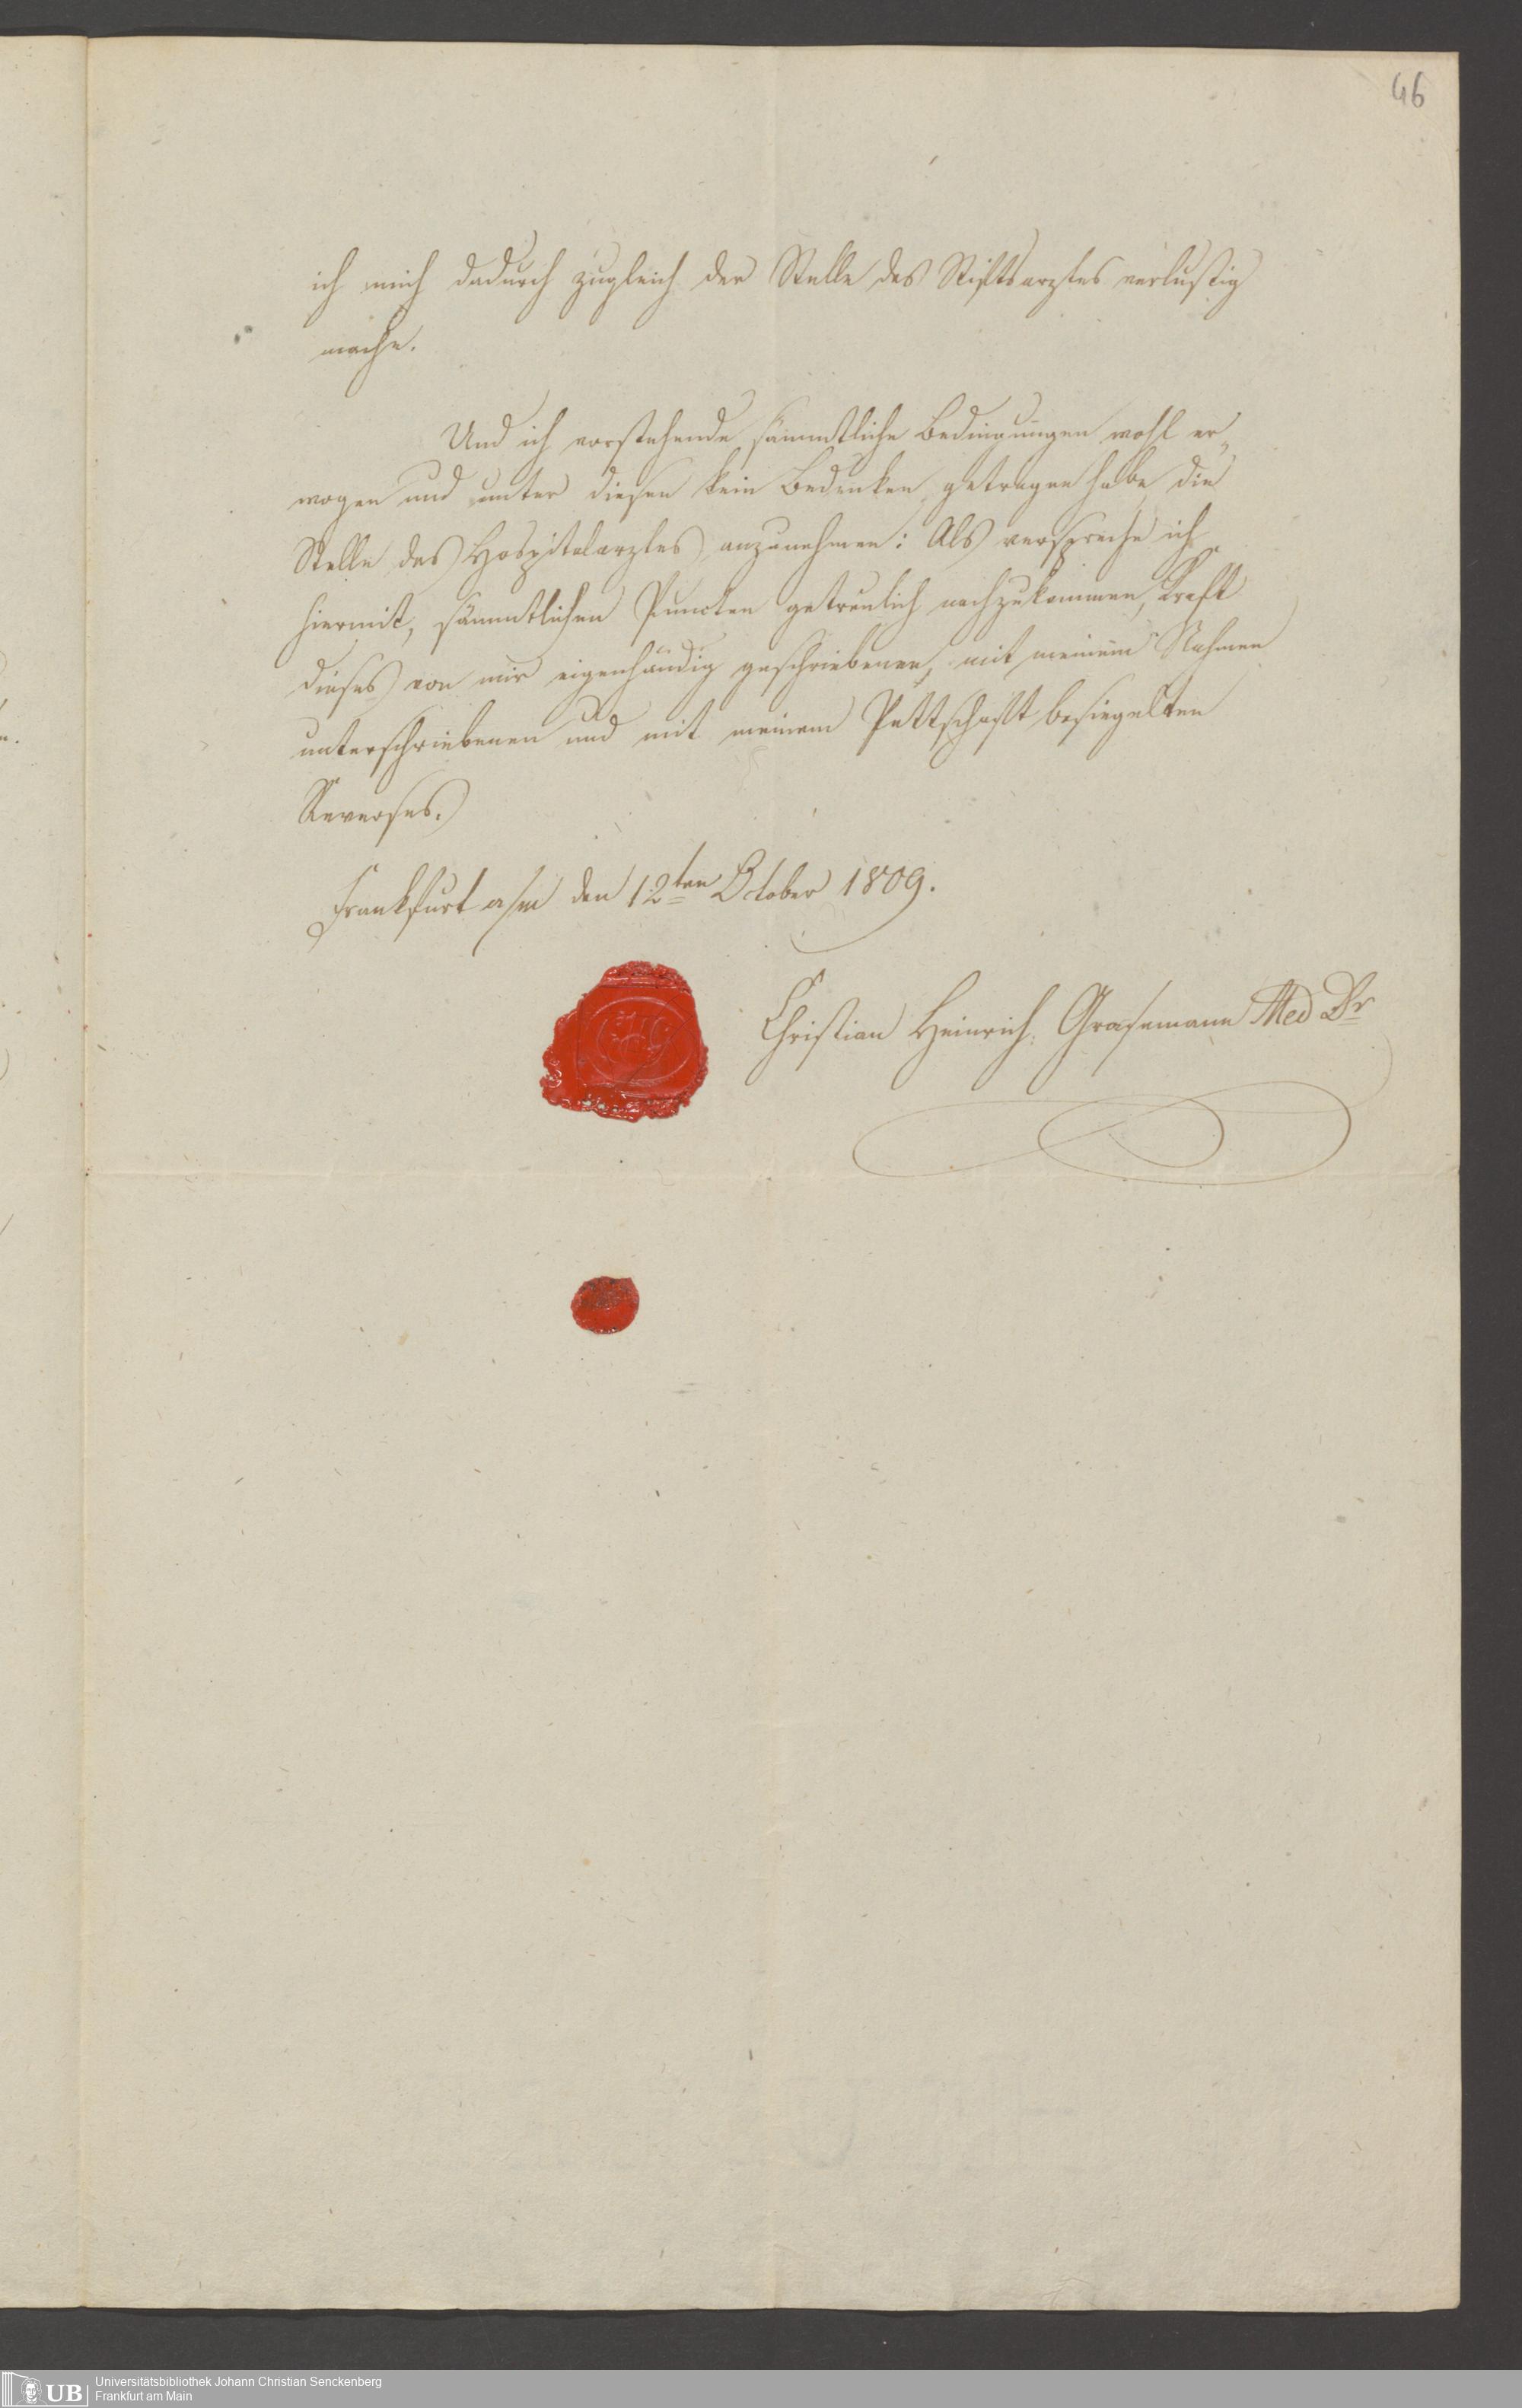 46
ich mich dadurch zugleich der Stelle des Stiftsarztes verlustig
mache.
Und ich vorstehende sämmtliche Bedingungen wohl er-
wogen und unter diesen kein Bedenken getragen habe die
Stelle des Hospitalarztes anzunehmen: Als verspreche ich
hiermit, sämmtlichen Puncten getreulich nachzukommen, Kraft
dieses von mir eigenhändig geschriebenen, mit meinem Nahmen
unterschriebenen und mit meinem Pettschaft besiegelten
Reverses.
Frankfurt a/m den 12ten October 1809.
Christian Heinrich Grasemann Med Dr
UB
Universitätsbibliothek Johann Christian Senckenberg
Frankfurt am Main